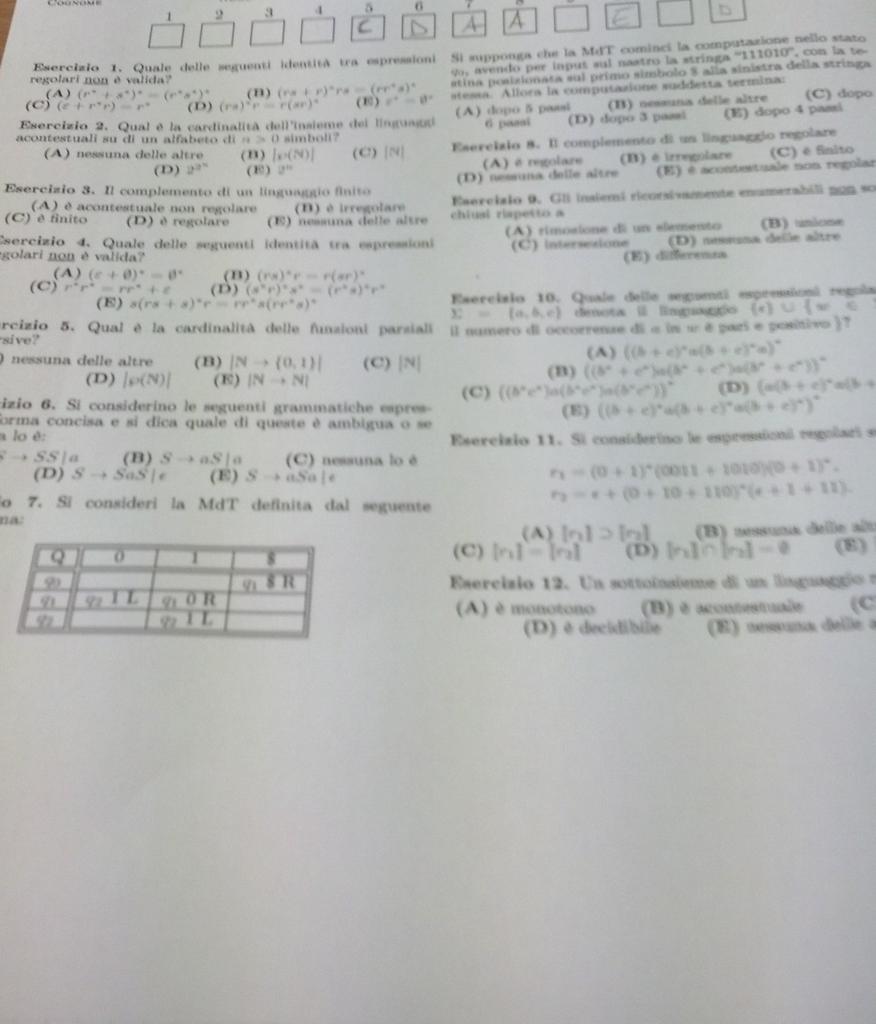 COGNOME
1 2 3 4 5 6 7
C D A A E D
Esercizio 1. Quale delle seguenti identità tra espressioni
regolari non è valida?
(A) (r* + s*)* = (r*s*)* (B) (rs + r)*rs = (rr*s)*
(C) (ε + r*r) = r* (D) (rs)*r = r(sr)* (E) ε* = ∅*
Esercizio 2. Qual è la cardinalità dell'insieme dei linguaggi
acontestuali su di un alfabeto di n > 0 simboli?
(A) nessuna delle altre (B) |℘(N)| (C) |N|
(D) 2^2^n (E) 2^n
Esercizio 3. Il complemento di un linguaggio finito
(A) è acontestuale non regolare (B) è irregolare
(C) è finito (D) è regolare (E) nessuna delle altre
Esercizio 4. Quale delle seguenti identità tra espressioni
golari non è valida?
(A) (ε + ∅)* = ∅* (B) (rs)*r = r(sr)*
(C) r*r* = rr* + ε (D) (s*r*)*s* = (r*s*)*r*
(E) s(rs + s)*r = rr*s(rr*s)*
rcizio 5. Qual è la cardinalità delle funzioni parziali
sive?
) nessuna delle altre (B) |N → {0, 1}| (C) |N|
(D) |℘(N)| (E) |N → N|
izio 6. Si considerino le seguenti grammatiche espres-
orma concisa e si dica quale di queste è ambigua o se
a lo è:
S → SS | a (B) S → aS | a (C) nessuna lo è
(D) S → SaS | ε (E) S → aSa | ε
o 7. Si consideri la MdT definita dal seguente
ma:
Q 0 1 $
q₀ q₁ $ R
q₁ q₂ 1 L q₁ 0 R
q₂ q₂ 1 L
Si supponga che la MdT cominci la computazione nello stato
q₀, avendo per input sul nastro la stringa "111010", con la te-
stina posizionata sul primo simbolo $ alla sinistra della stringa
stessa. Allora la computazione suddetta termina:
(A) dopo 5 passi (B) nessuna delle altre (C) dopo
6 passi (D) dopo 3 passi (E) dopo 4 passi
Esercizio 8. Il complemento di un linguaggio regolare
(A) è regolare (B) è irregolare (C) è finito
(D) nessuna delle altre (E) è acontestuale non regolar
Esercizio 9. Gli insiemi ricorsivamente enumerabili non so
chiusi rispetto a
(A) rimozione di un elemento (B) unione
(C) intersezione (D) nessuna delle altre
(E) differenza
Esercizio 10. Quale delle seguenti espressioni regola
Σ = {a, b, c} denota il linguaggio {ε} ∪ { w ∈
il numero di occorrenze di a in w è pari e positivo }?
(A) ((b + c)*a(b + c)*a)*
(B) ((b* + c*)a(b* + c*)a(b* + c*))*
(C) ((b*c*)a(b*c*)a(b*c*))* (D) (a(b + c)*a(b +
(E) ((b + c)*a(b + c)*a(b + c)*)*
Esercizio 11. Si considerino le espressioni regolari s
r₁ = (0 + 1)*(0011 + 1010)(0 + 1)*,
r₂ = ε + (0 + 10 + 110)*(ε + 1 + 11).
(A) [r₁] ⊃ [r₂] (B) nessuna delle alt
(C) [r₁] = [r₂] (D) [r₁] ∩ [r₂] = ∅ (E)
Esercizio 12. Un sottoinsieme di un linguaggio
(A) è monotono (B) è acontestuale (C
(D) è decidibile (E) nessuna delle a